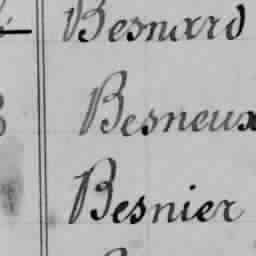 Besnard
Besneux
Besnier